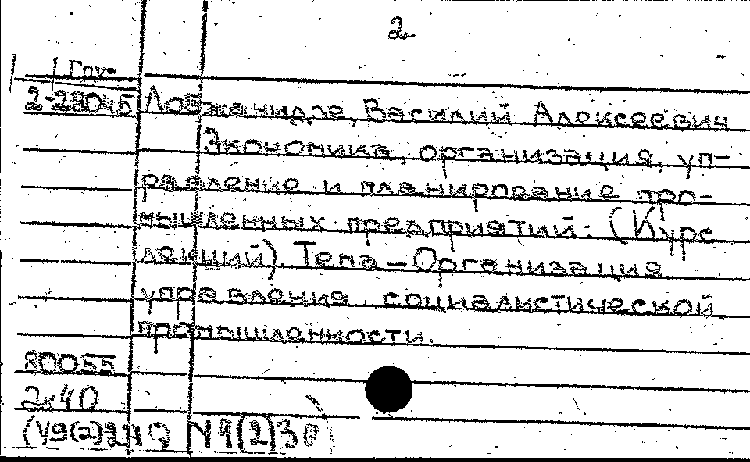 2
Гру-
2-28045 Ловжанидзе, Василий Алексеевич
Экономика, организация, уп-
равление и планирование про-
мышленных предприятий. (Курс
лекций). Тема - Организация
управления социалистической
промышленности.
80055
2х40